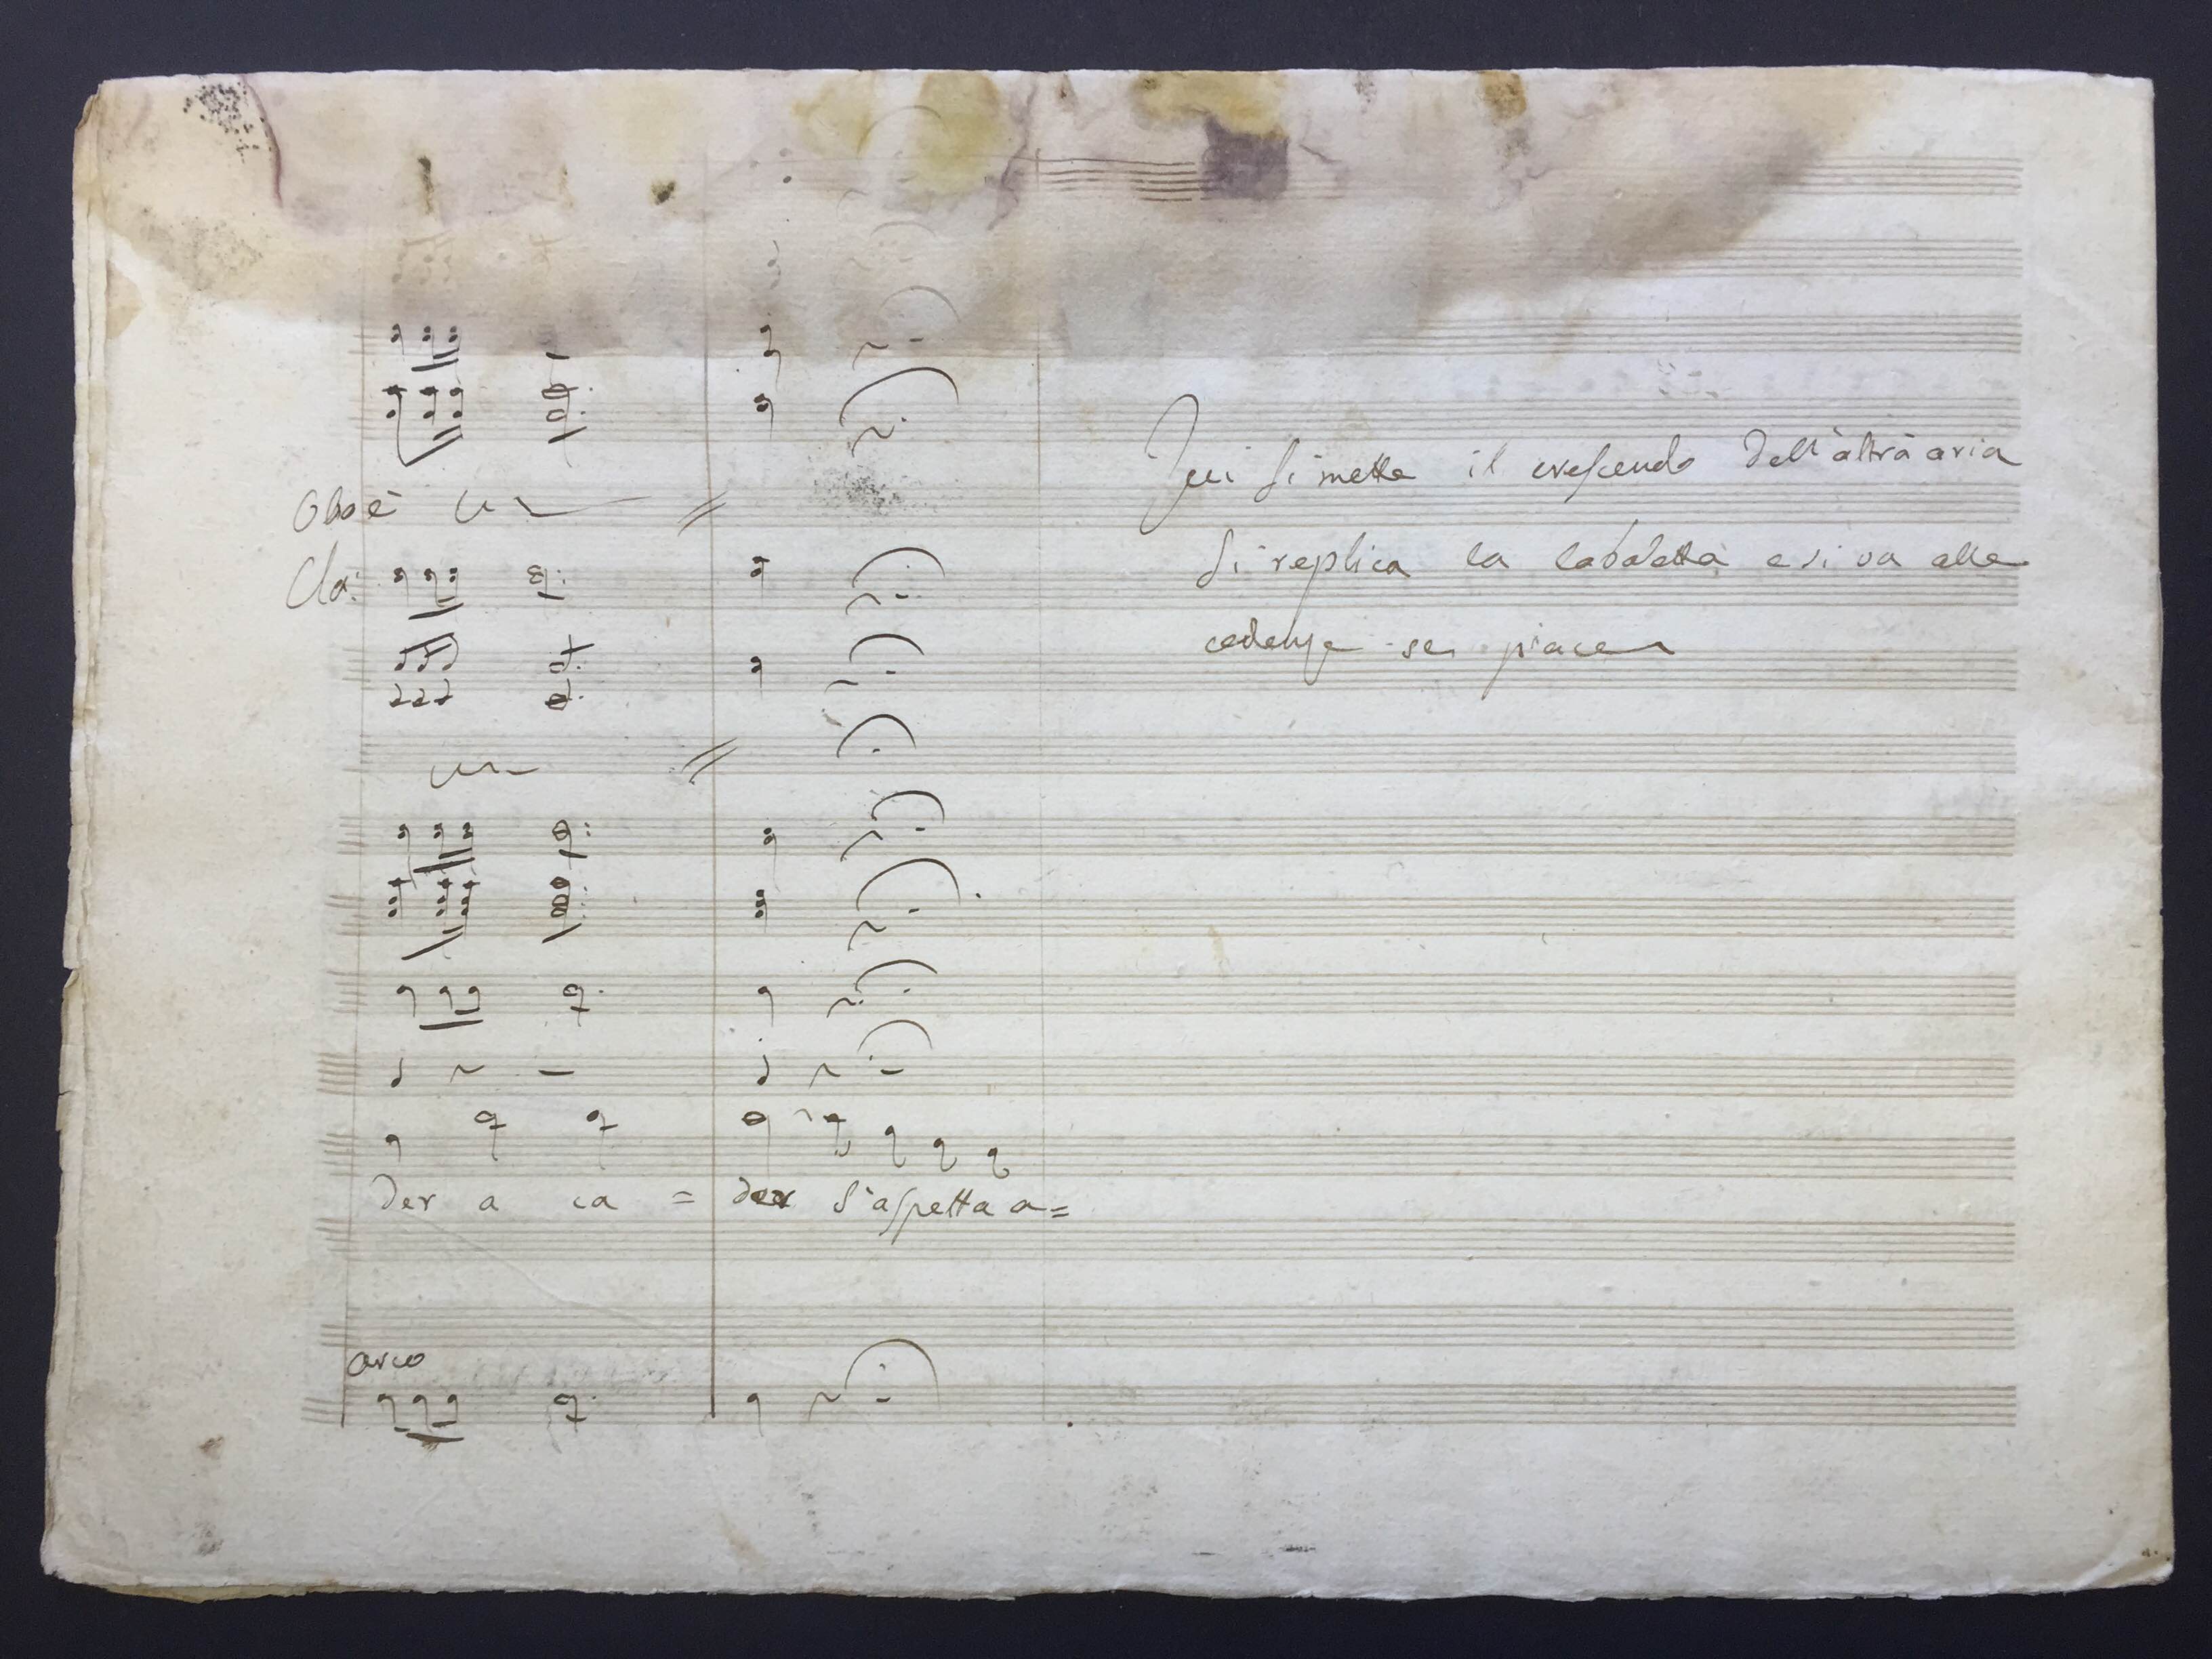 Qui si mette il crescendo dell'altra aria
Oboè
Si replica la cabaletta e si va alle
Cla:
cadenze se piace
der a ca = der s'aspetta a=
arco